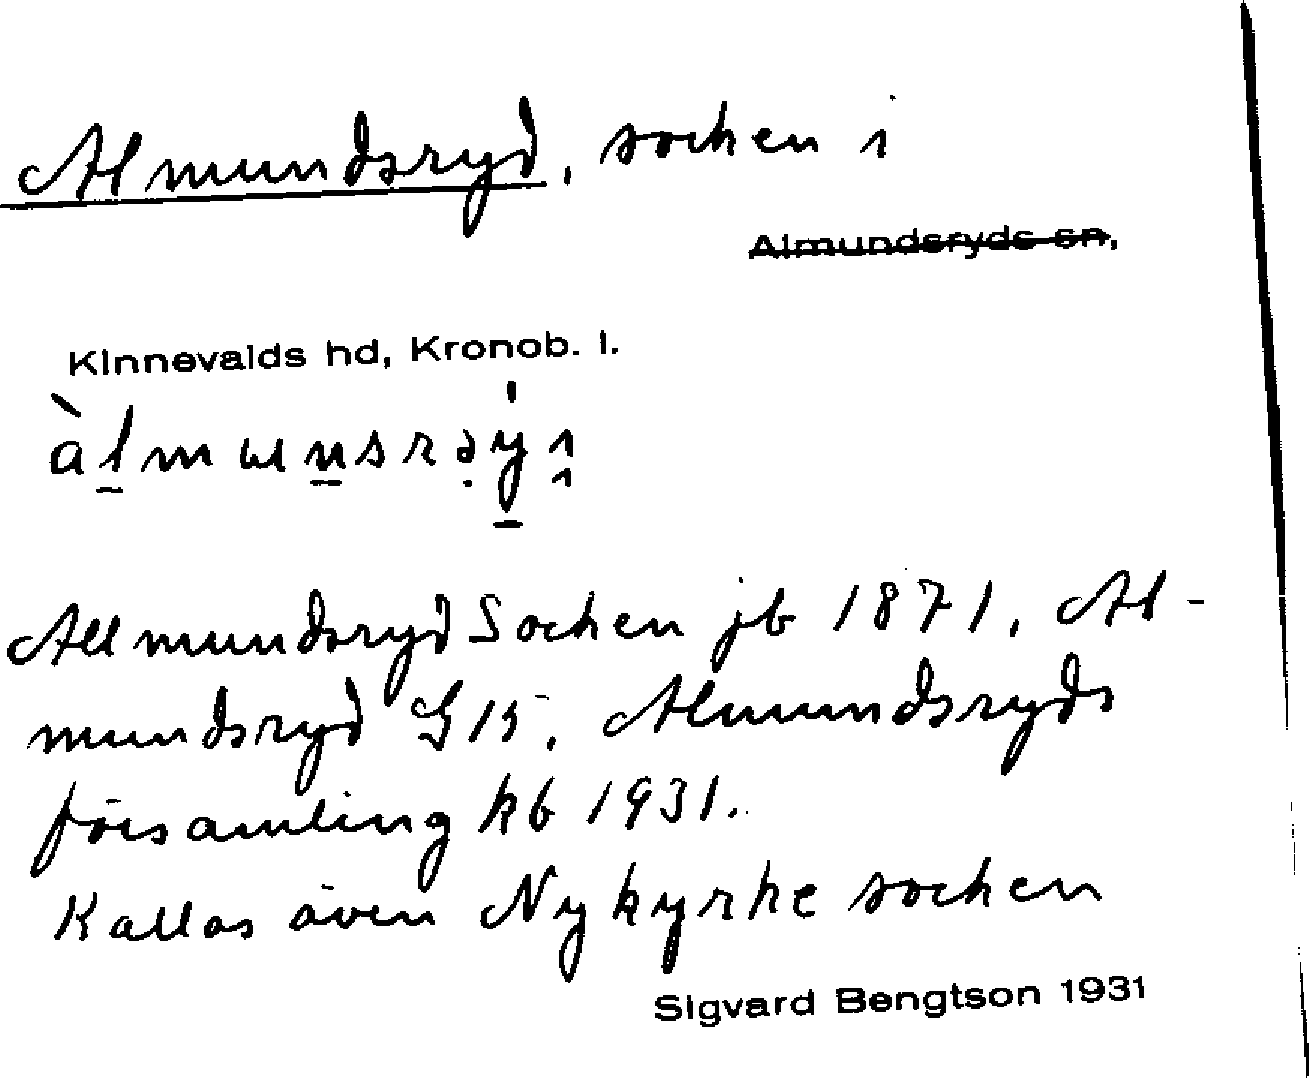 Almundsryd, socken i
Almundsryds sn,
Kinnevalds hd, Kronob. l.
Allmundsryd Socken jb 1871, Al-
mundsryd G15, Almundsryds
församling kb 1931.
Kallas även Nykyrke socken
Sigvard Bengtson 1931